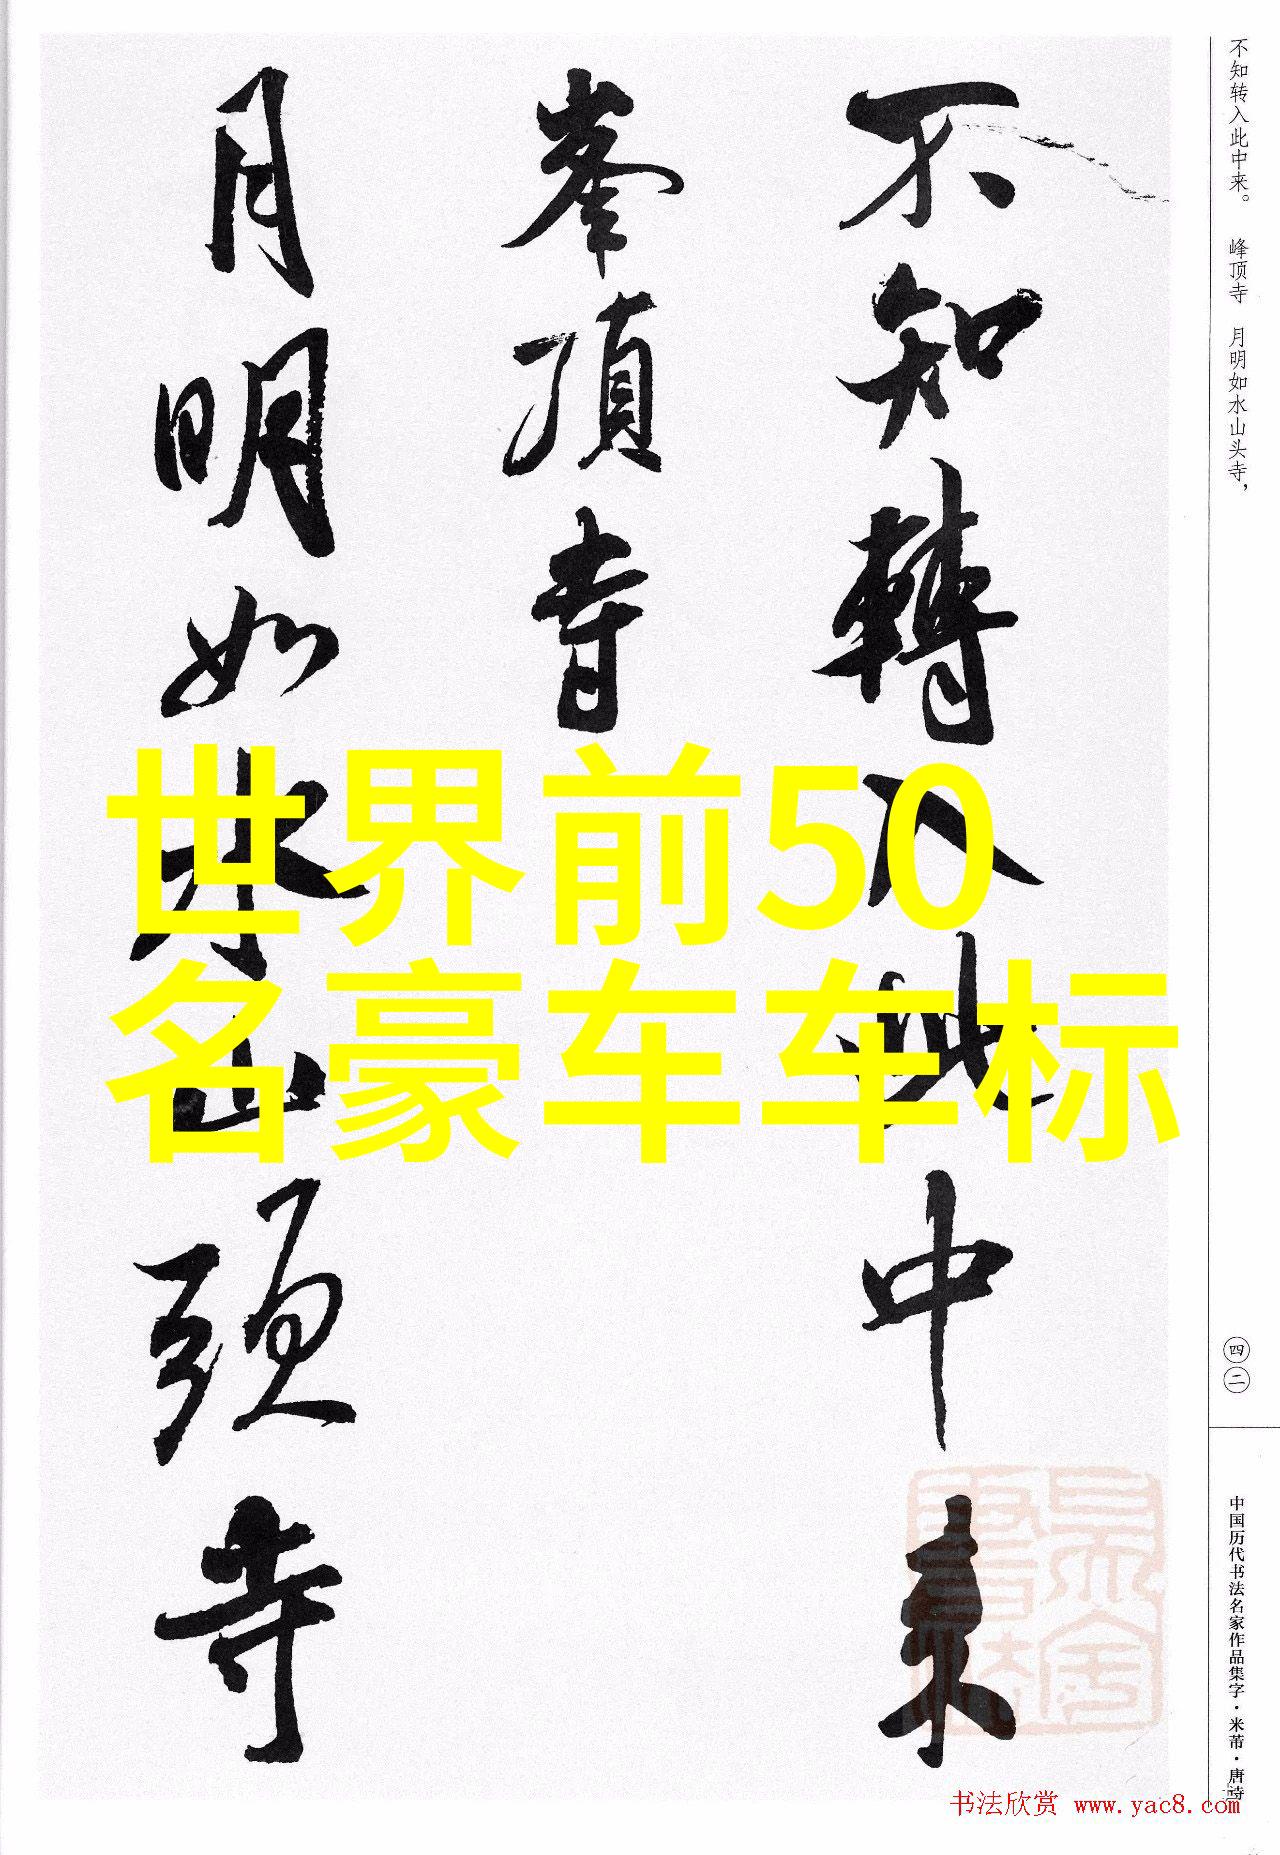 不知转入此中来。 峰顶寺 月明如水山头寺，
不知轉入此中来
峯頂寺
月明如水山頭寺
世界前50
名豪车车标
四二
中国历代书法名家作品集字·米芾·唐诗
书法欣赏 www.yac8.com